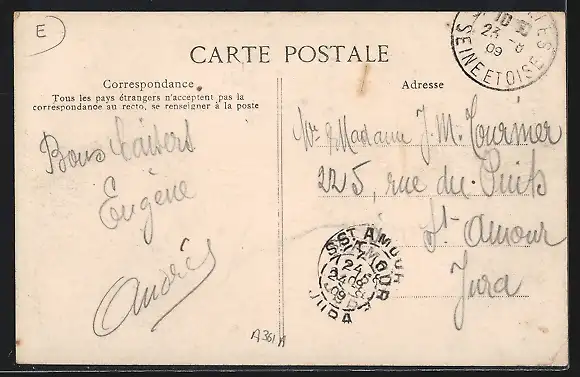 E
CARTE POSTALE
Correspondance
Tous les pays étrangers n'acceptent pas la
correspondance au recto, se renseigner à la poste
Adresse
Bons baisers
Eugène
André
Mr & Madame J. M. Tournier
225, rue du Puits
St- Amour
Jura
10
23 -8
09
SEINE ET OISE
ST AMOUR
24
09
JURA
A361A